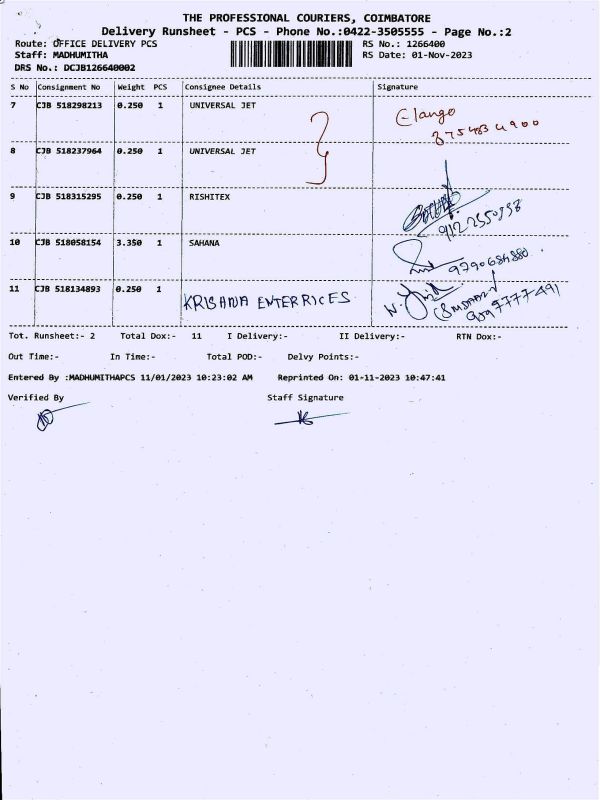 THE PROFESSIONAL COURIERS, COIMBATORE
Delivery Runsheet - PCS - Phone No.:0422-3505555 - Page No.:2
Route: OFFICE DELIVERY PCS RS No.: 1266400
Staff: MADHUMITHA RS Date: 01-Nov-2023
DRS No.: DCJB126640002
S No Consignment No Weight PCS Consignee Details Signature
7 CJB 518298213 0.250 1 UNIVERSAL JET Elango
8 CJB 518237964 0.250 1 UNIVERSAL JET
9 CJB 518315295 0.250 1 RISHITEX
10 CJB 518058154 3.350 1 SAHANA 9790684880
11 CJB 518134893 0.250 1 KRISHNA ENTERRICES
Tot. Runsheet:- 2 Total Dox:- 11 I Delivery:- II Delivery:- RTN Dox:-
Out Time:- In Time:- Total POD:- Delvy Points:-
Entered By :MADHUMITHAPCS 11/01/2023 10:23:02 AM Reprinted On: 01-11-2023 10:47:41
Verified By Staff Signature